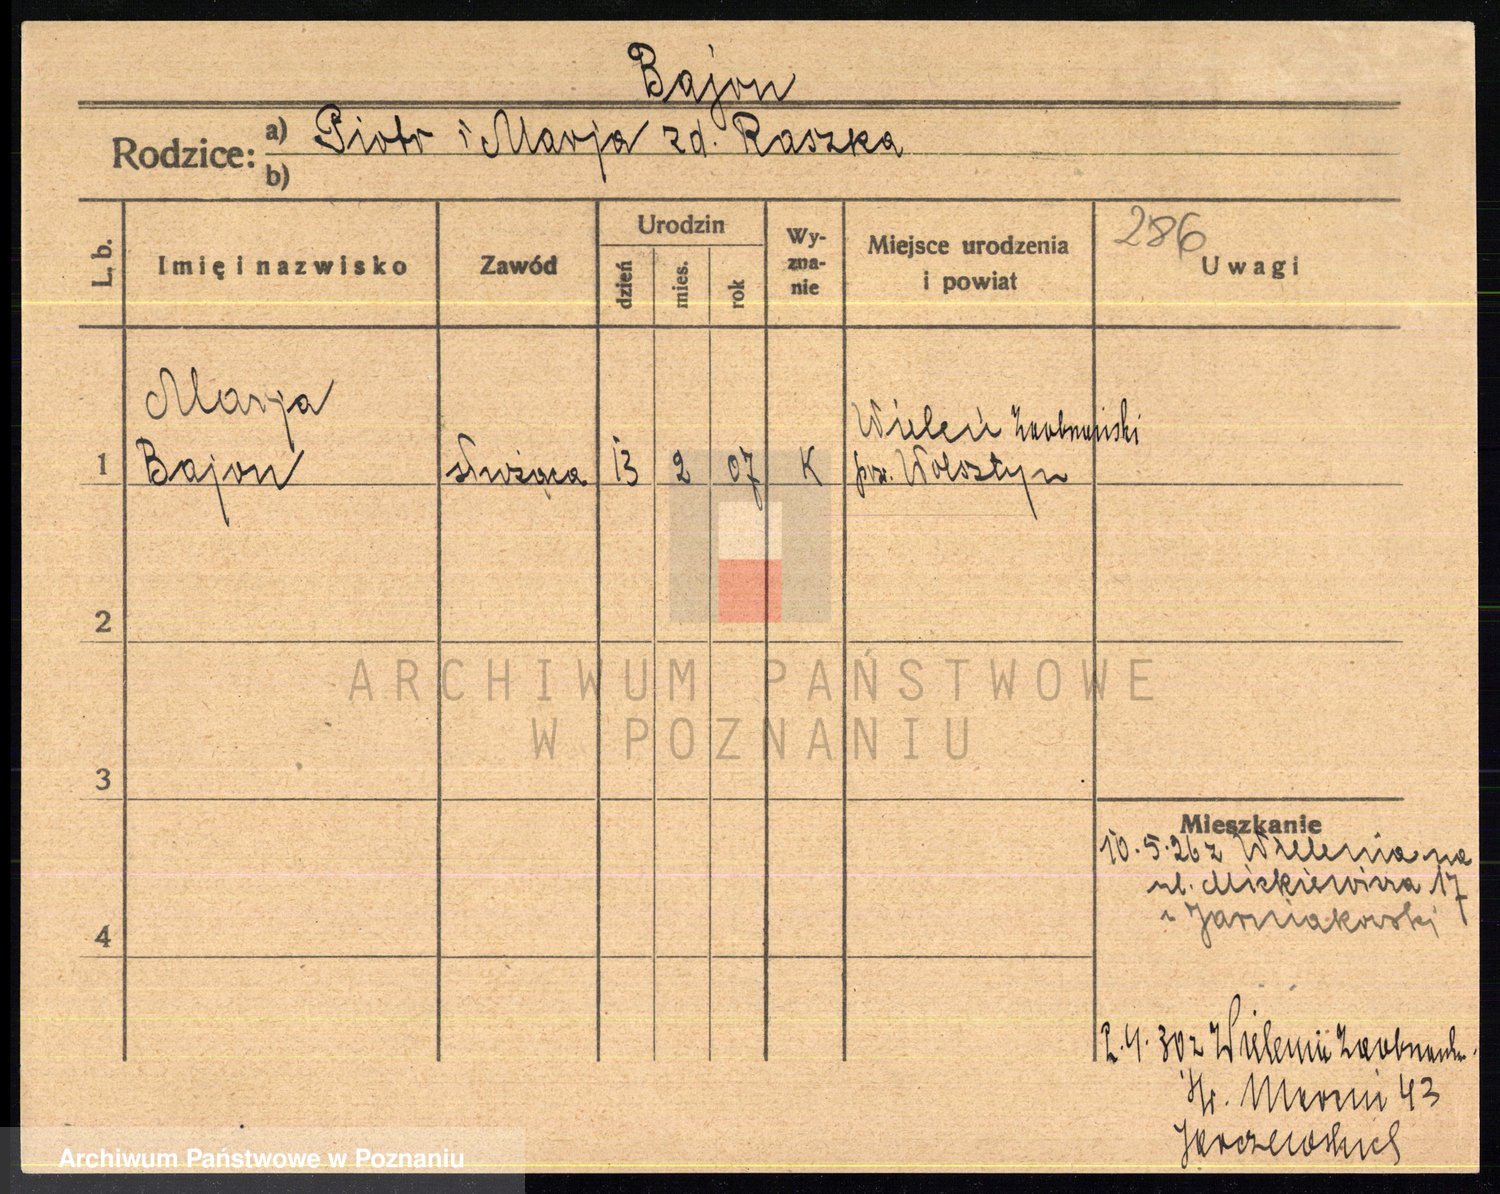 Bajon
Rodzice: a) Piotr i Marja zd. Raszka
b)
L. b.
Imię i nazwisko
Zawód
Urodzin
dzień
mies.
rok
Wy-
zna-
nie
Miejsce urodzenia
i powiat
286
Uwagi
Marja
1 Bajon służąca 13 2 07 K
Wieleń Zaobrzański
pow. Wolsztyn
2
3
4
ARCHIWUM PAŃSTWOWE
W POZNANIU
Mieszkanie
10.5.26 z Wielenia na
ul. Mickiewicza 17
Jarniakowski
2.4.30 z Wielenia
św. Marcin 43
Archiwum Państwowe w Poznaniu